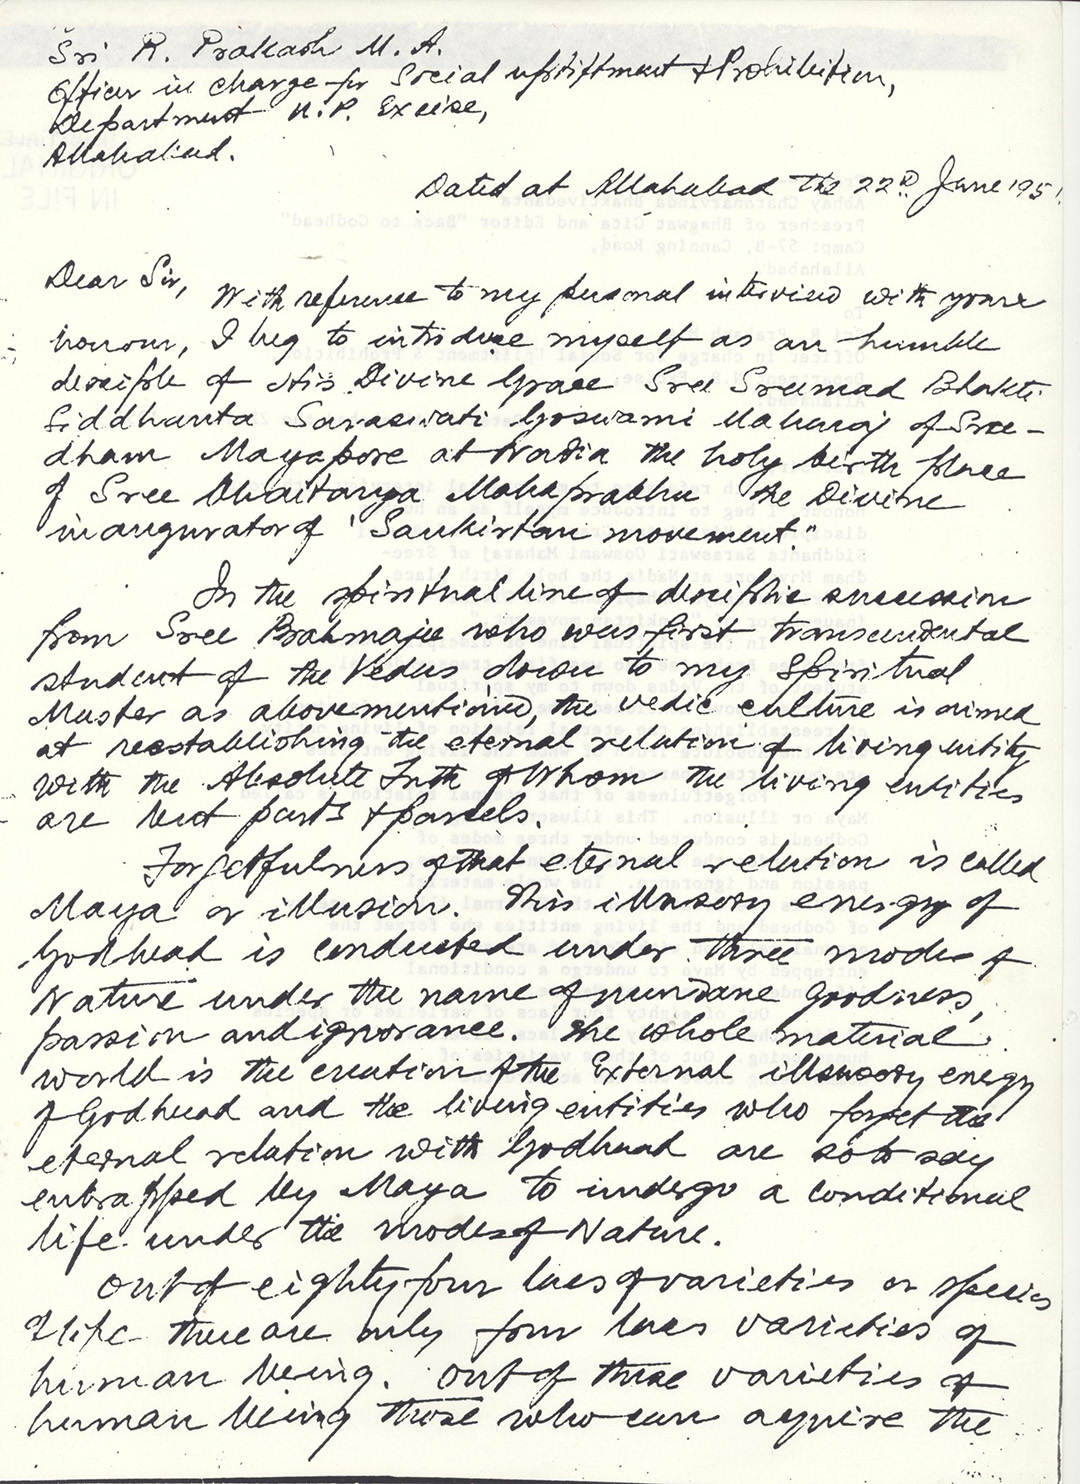 Sri R. Prakash M.A.
Officer in charge for Social upliftment & Prohibition,
Department U.P. Excise,
Allahabad.
Dated at Allahabad the 22nd June 1951
Dear Sir,
With reference to my personal interview with your
honour, I beg to introduce myself as an humble
disciple of His Divine Grace Sree Sreemad Bhakti
Siddhanta Saraswati Goswami Maharaj of Sree-
dham Mayapore at Nadia the holy birth place
of Sree Chaitanya Mahaprabhu the Divine
inaugurator of "Sankirtan movement."
In the spiritual line of disciplic succession
from Sree Brahmajee who was first transcendental
student of the Vedas down to my Spiritual
Master as abovementioned, the vedic culture is aimed
at reestablishing the eternal relation of living entity
with the Absolute Truth of Whom the living entities
are but parts & parcels.
Forgetfulness of that eternal relation is called
Maya or illusion. This illusory energy of
Godhead is conducted under three modes of
Nature under the name of mundane goodness,
passion and ignorance. The whole material
world is the creation of the External illusory energy
of Godhead and the living entities who forget the
eternal relation with Godhead are so to say
entrapped by Maya to undergo a conditional
life under the modes of Nature.
Out of eighty four lacs of varieties or species
of life there are only four lacs varieties of
human being. Out of these varieties of
human being those who can acquire the
Abhay Charanarvinda Bhaktivedanta
Preacher of Bhagwat Gita and Editor "Back to Godhead"
Camp: 57-B, Canning Road,
Allahabad
ORIGINAL
IN FILE